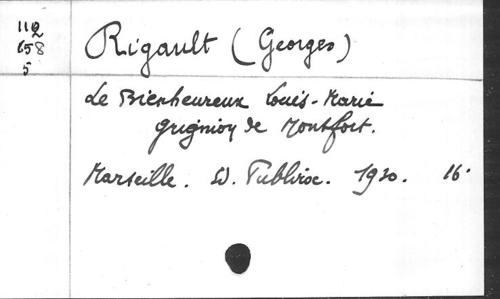 112
658
5
Rigault (Georges)
Le Bienheureux Louis-Marie
Grignion de Montfort.
Marseille. Ed. Publiroc. 1930. 16°